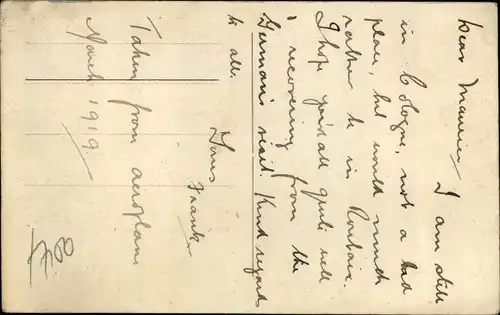 Dear Maurice, I am still
in Cologne, not a bad
place, but would much
rather be in Roubaix.
I hope you're all quite well
& recovering from the
German's visit! Kind regards
to all.
Yours
Frank
Taken from aeroplane
March 1919.